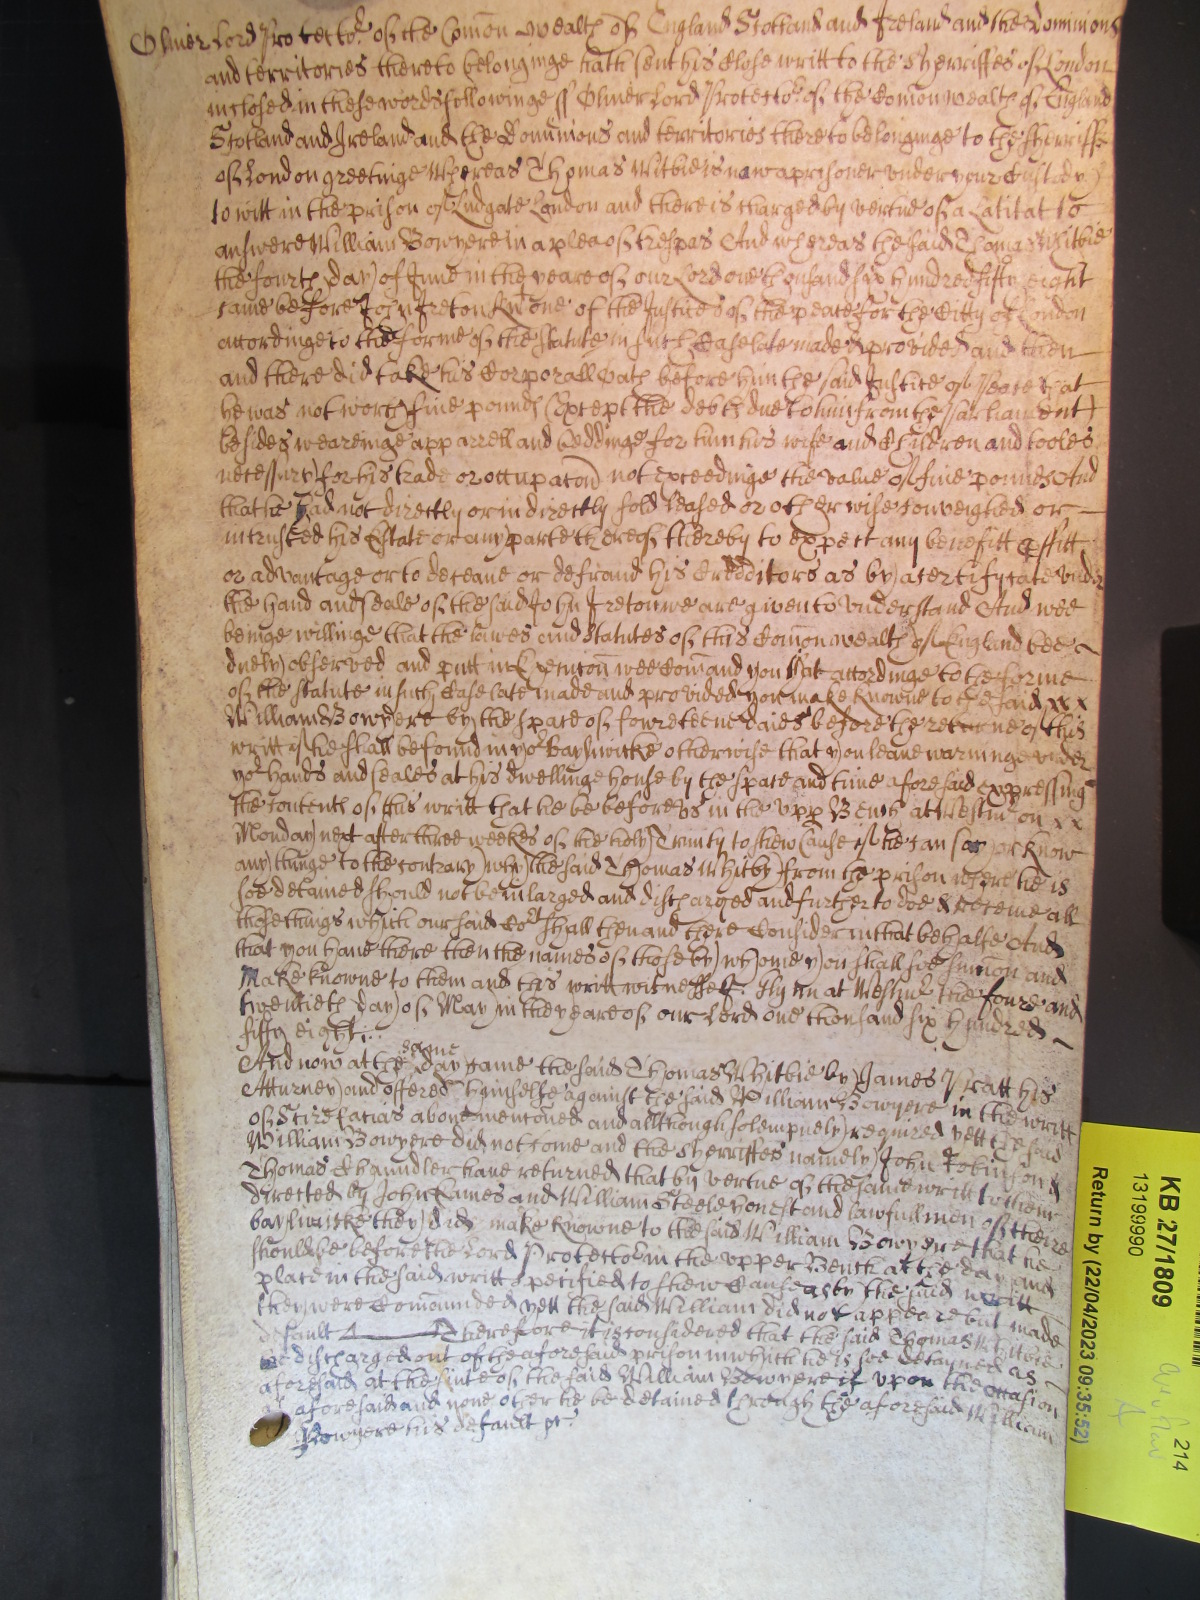 Oliver Lord Protecto.r of the Com̄on Wealth of England Scotland and Ireland and the Dominions
and territories thereto belonginge hath sent his Close writt to the Sherriffes of London
inclosed in these words followinge ss Oliver Lord Protecto.r of the Com̄on wealth of England
Scotland and Ireland and the Dominions and territories thereto belonginge to the Sherriffs
of London greetinge Whereas Thomas Witbie is now a prisoner vnder your Custody
to witt in the prison of Ludgate London and there is charged by vertue of a Latitat to
answere William Bowyere in a plea of trespas And whereas the said Thomas Whitbie
the fourth day of June in the yeare of our Lord one thousand six hundred fifty eight
came before John Ireton one of the Justices of the peace for the Citty of London
accordinge to the forme of the Statute in such Case late made & provided and then
and there did take his Corporall oath before him the said Justice of Peace that
he was not worth five pounds Except the debts due to him from the Parliament
besides weareinge apparrell and beddinge for him his wife and Children and tooles
necessary for his trade or occupacōn not Exceedinge the value of five pounds And
that he had not directly or indirectly sold leased or otherwise conveighed or
intrusted his Estate or any parte thereof thereby to expect any benefitt
or advantage or to deceave or defraud his Credditors as by a certifycate vnder
the hand and seale of the said John Ireton we are given to vnderstand And wee
beinge willinge that the lawes and Statutes of this Com̄on wealth of England bee
duely observed and putt in Execucōn wee Com̄and you that accordinge to the forme
of the statute in such Case late made and provided you make knowne to the said x x x
William Bowyere by the space of fowreteene daies before the returne of this
writt if he shall be found in yo.r Baylywicke otherwise that you leave warninge vnder
yo.r hands and seales at his dwellinge house by the space and time aforesaid expressing
the contents of this writt that he be before vs in the vpp Bench at Westm̄ on x x
Monday next after three weekes of the holy Trinity to shew Cause if he can say or know
any thinge to the contrary why the said Thomas Whitby from the prison where he is
soe detained should not be inlarged and discharged and further to doe & receive all
those things which our said Co.rt shall then and there Consider in that behalfe And
that you have there then the names of those by whome you shall soe sum̄on and
make knowne to them and this writt witnesse at Westm̄ the foure and
twentieth day of May in the yeare of our Lord one thousand six hundred
fifty eight:
And now at the same day came the said Thomas Whitbie by James Pratt his
Atturney and offered himselfe against the said William Bowyere in the writt
of Scire facias above menconed and allthough solempnely required yett the said
William Bowyere did not come and the Sherriffes namely John Robinson &
Thomas Chaundler have returned that by vertue of the same writt to them
directed by John Eames and William Steele honest and lawfull men of theire
baylywicke they did make knowne to the said William Bowyere that he
should be before the Lord Protector in the vpper Bench at the day and
place in the said writt specified to shew Cause as by the said writt
they were Com̄ounded yett the said William did not appeare but made
default Therefore it is considered that the said Thomas Whitbie
be discharged out of the aforesaid prison in which he is soe detained as
aforesaid at the suite of the said William Bowyere if vpon the occasion
aforesaid and none other he be detained through the aforesaid William
Bowyere his default
KB 27/1809
13199990
Return by (22/04/2023 09:35:52)
214